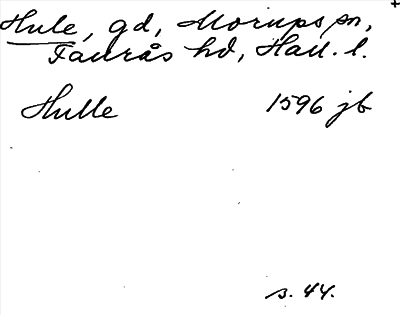 Hule, gd, Morups sn,
Faurås hd, Hall. l.
Hulle 1596 jb
s. 44.